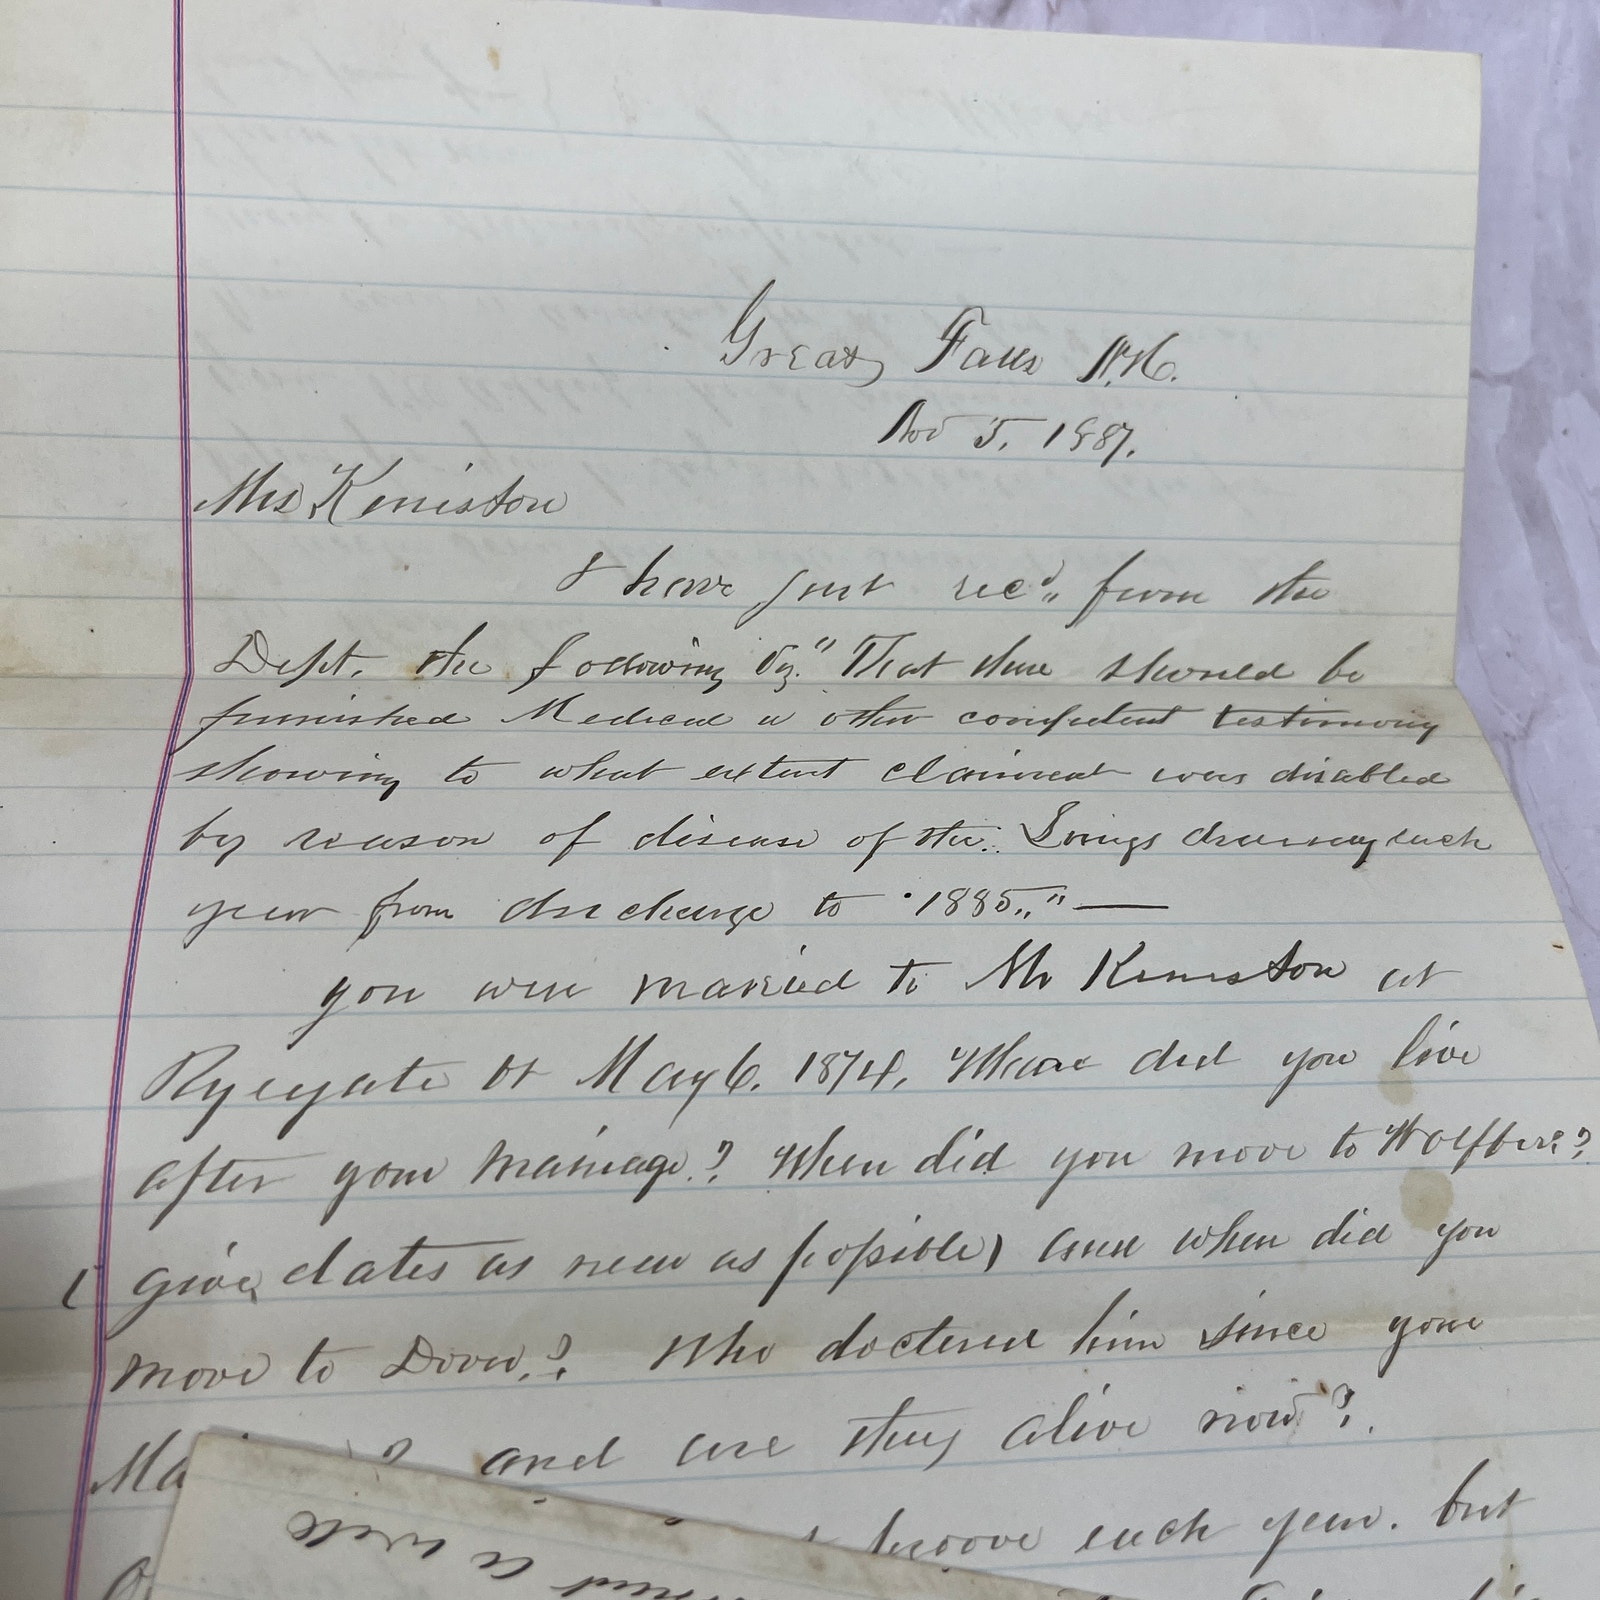 Great Falls N.H.
Nov 5, 1887.
Mrs Keniston
I have just rec'd,, from the
Dept. the following Viz." That there should be
furnished Medical or other competent testimony
showing to what extent claimant was disabled
by reason of disease of the Lungs during each
year from discharge to '1885,," —
you were married to Mr Keniston at
Ryegate Vt May 6. 1874. Where did you live
after your marriage.? When did you move to Wolfboro.?
( give dates as near as possible) and when did you
move to Dover.? Who doctered him since your
Ma ? and are they alive now?.
proove each year. but
a well